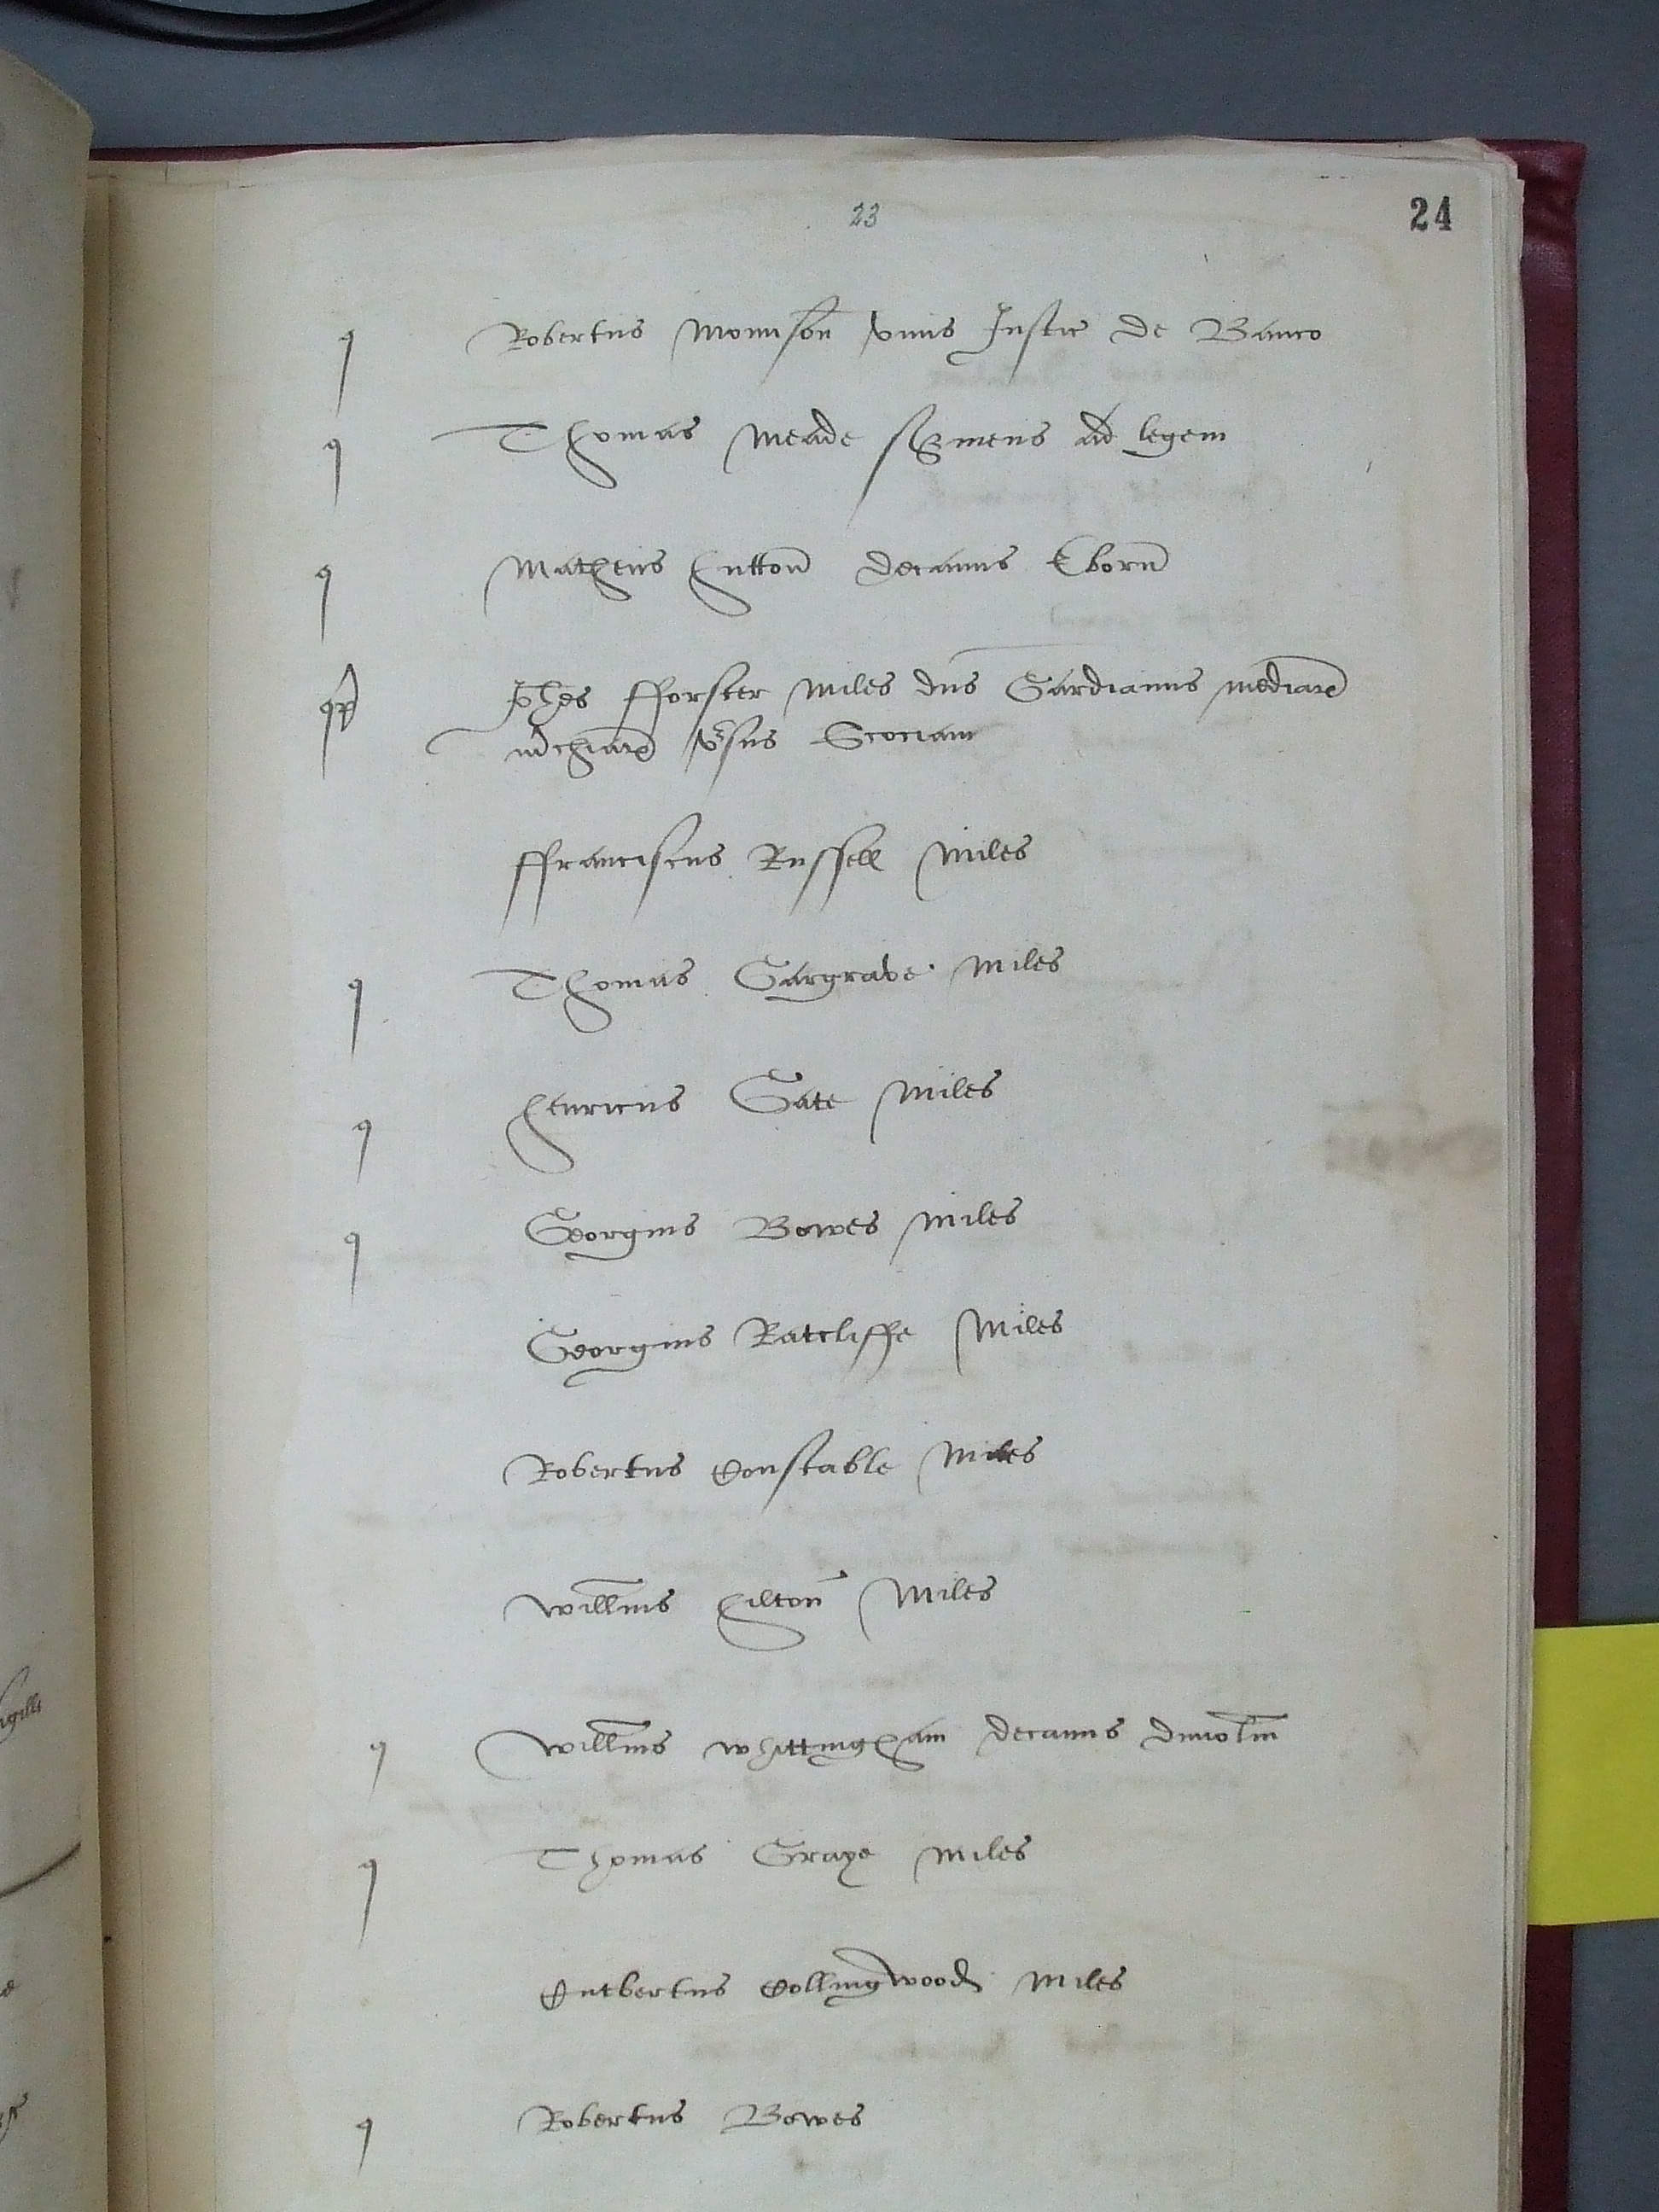 23
24
q Robertus Mounson vnus Justic de Banco
q Thomas Meade s̃viens ad legem
q Matheus Hutton decanus Eborũ
qr Johẽs fforster Miles dñs Gardianus mediarẽ
m̃chiarẽ ṽsus Scociam
ffranciscus Russell Miles
q Thomas Gargrave Miles
q Henricus Gate Miles
q Georgius Bowes Miles
Georgius Ratcliffe Miles
Robertus Constable Miles
Willm̃s Hilton Miles
q Willm̃s Whittingham decanus dunolm̃
q Thomas Graye Miles
Cutbertus Collingwood Miles
q Robertus Bowes